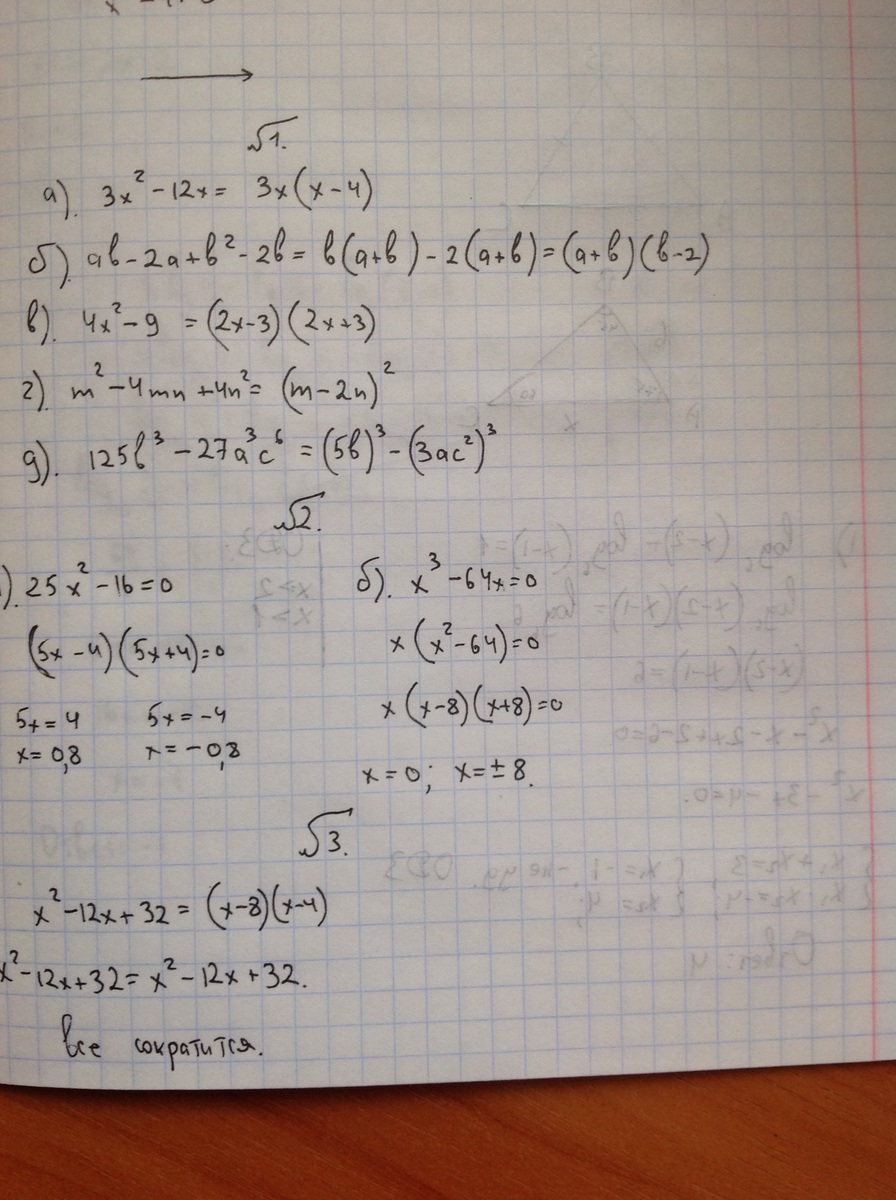 №1.
а). 3x² - 12x = 3x(x - 4)
б). ав - 2а + в² - 2в = в(а+в) - 2(а+в) = (а+в)(в-2)
в). 4x² - 9 = (2x-3)(2x+3)
г). m² - 4mn + 4n² = (m - 2n)²
д). 125в³ - 27а³с⁶ = (5в)³ - (3ас²)³
№2.
). 25x² - 16 = 0
(5x - 4)(5x+4) = 0
5x = 4 5x = -4
x = 0,8 x = -0,8
б). x³ - 64x = 0
x(x² - 64) = 0
x(x-8)(x+8) = 0
x = 0; x = ± 8.
№3.
x² - 12x + 32 = (x-8)(x-4)
x² - 12x + 32 = x² - 12x + 32.
все сократится.